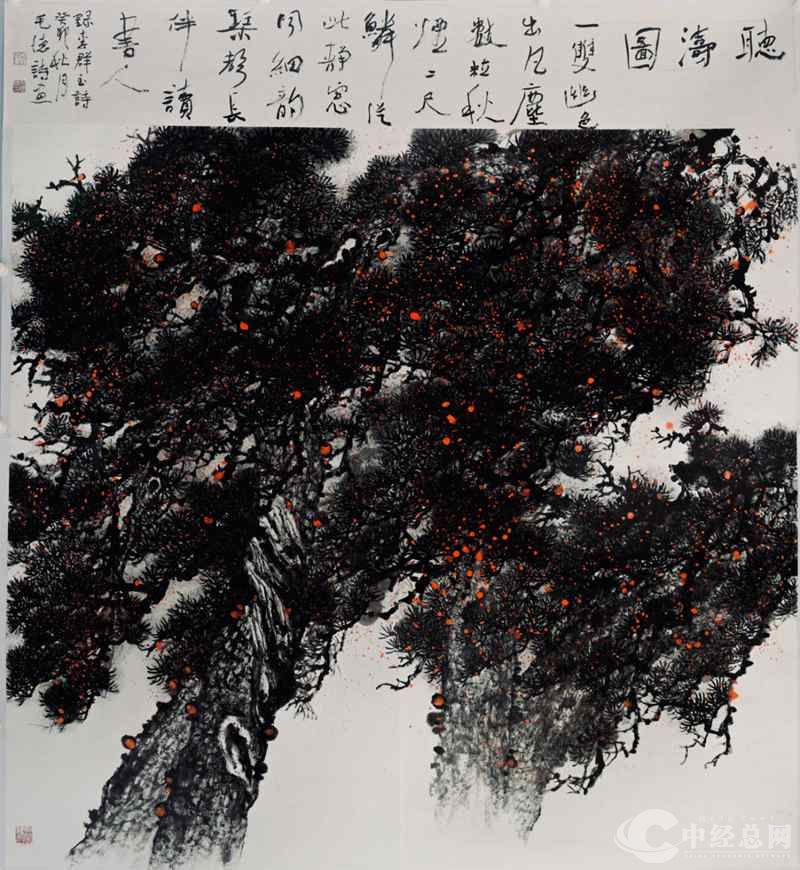 聽濤圖
一雙幽色
出凡塵
數粒秋
煙二尺
鱗從
此靜窓
聞細韻
琴聲長
伴讀
書人
錄李群玉詩
癸卯秋月
毛
中经总网